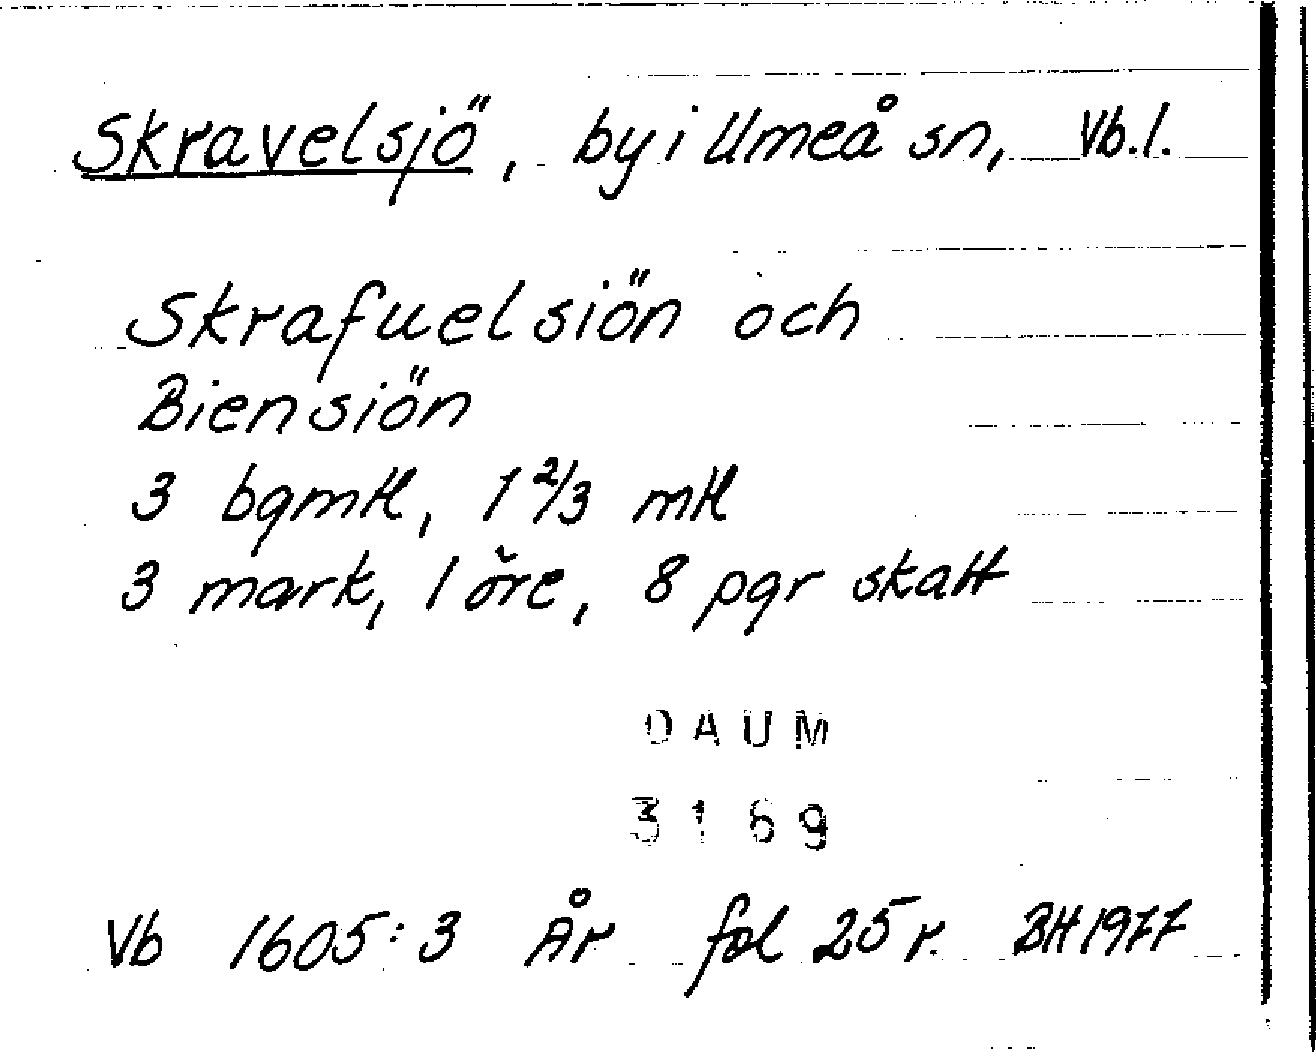 Skravelsjö, by i Umeå sn, Vb.l.
Skrafuelsiön och
Biensiön
3 bgmtl, 1 2/3 mtl
3 mark, 1 öre, 8 pgr skatt
DAUM
3169
Vb 1605:3 År fol 25 r. BH 1977